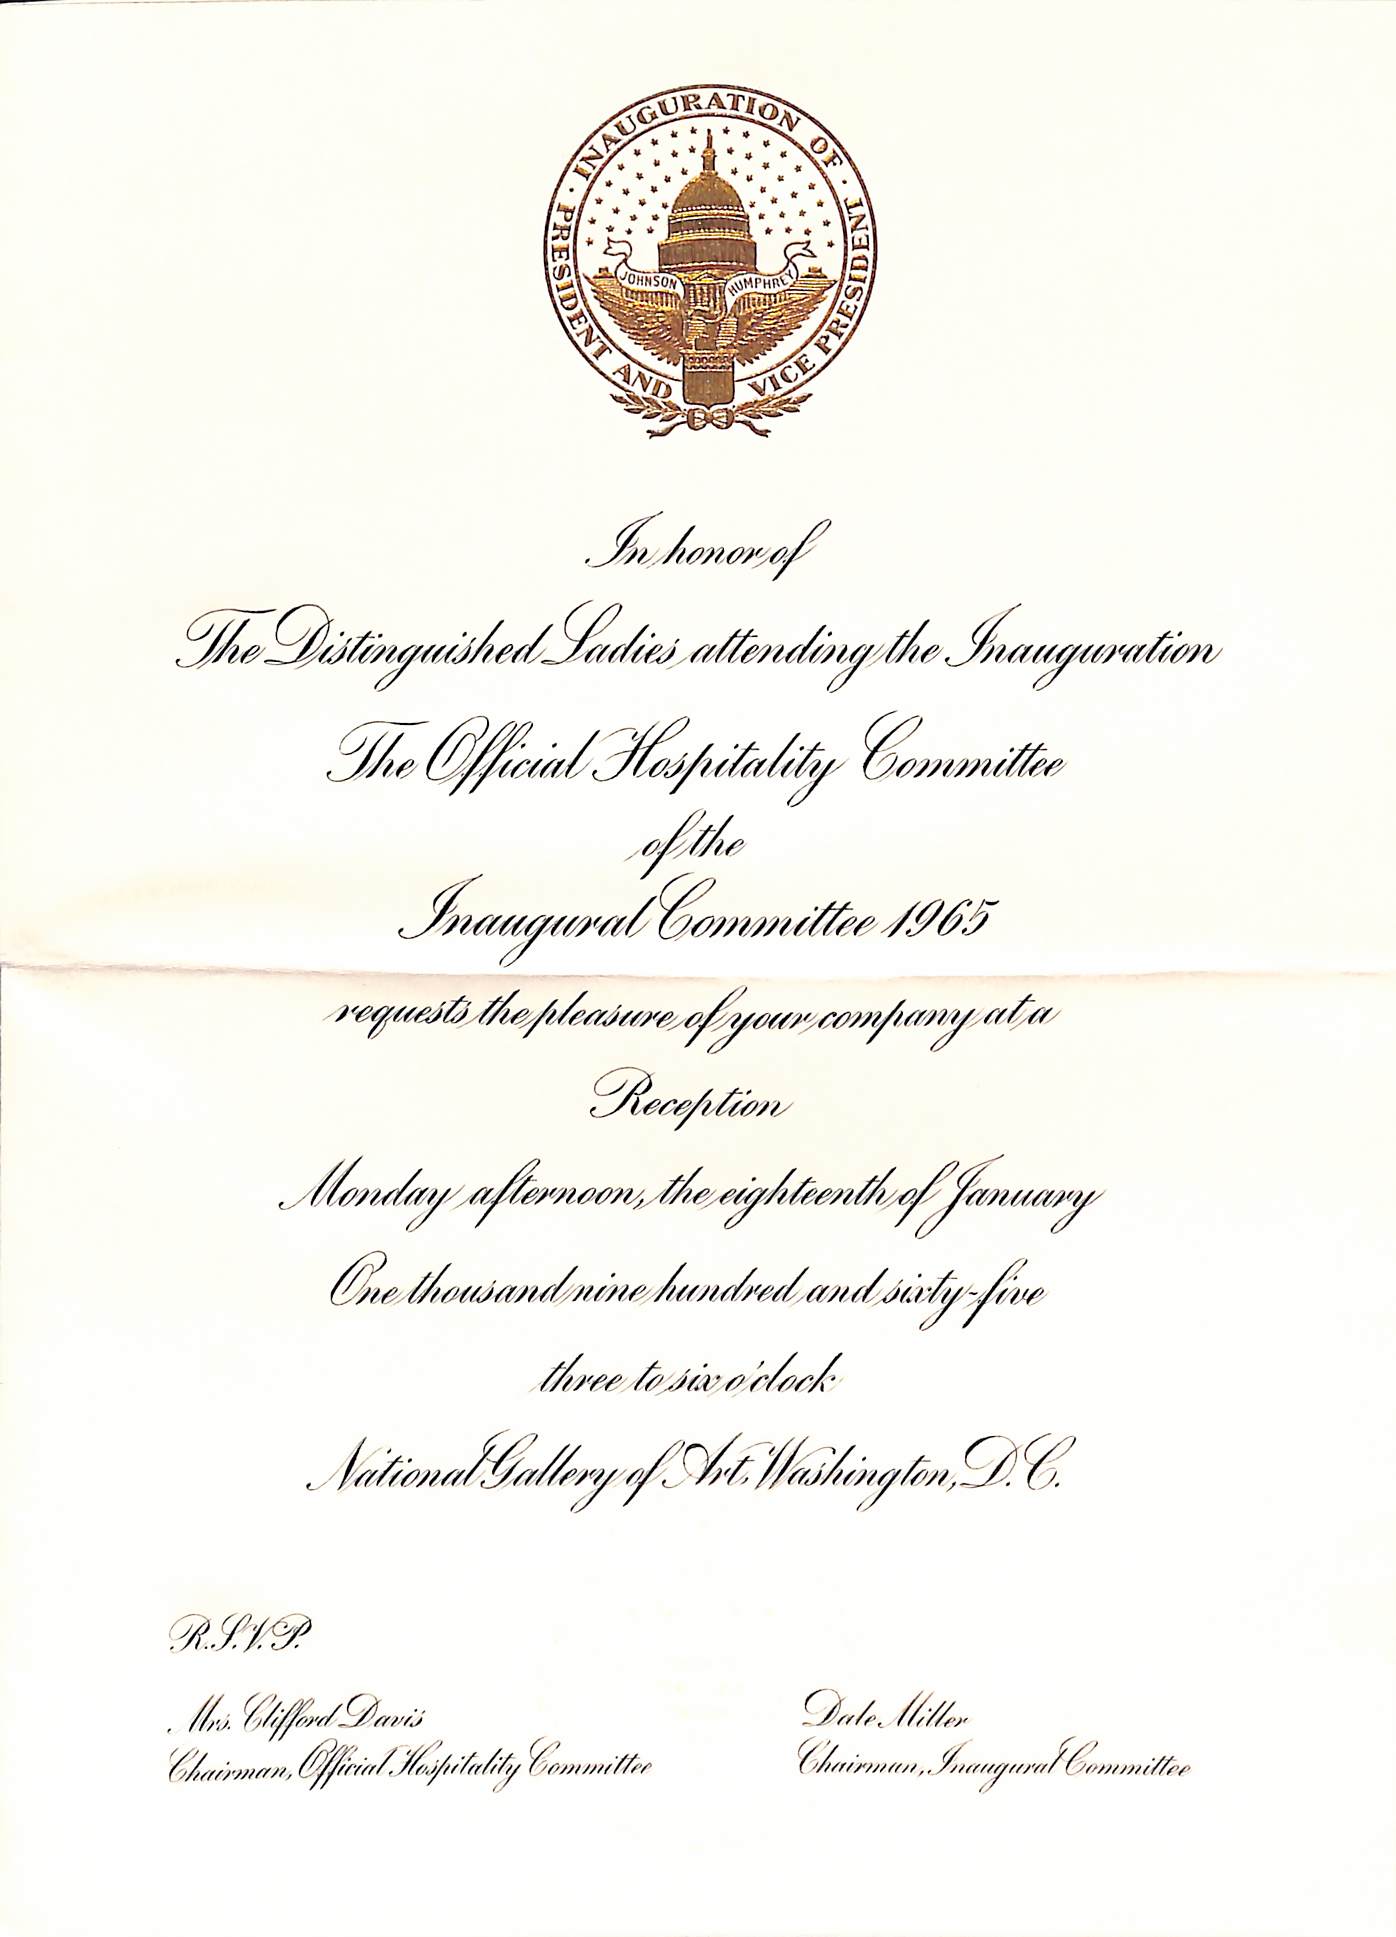 · INAUGURATION OF ·
PRESIDENT AND VICE PRESIDENT
JOHNSON HUMPHREY
In honor of
The Distinguished Ladies attending the Inauguration
The Official Hospitality Committee
of the
Inaugural Committee 1965
requests the pleasure of your company at a
Reception
Monday afternoon, the eighteenth of January
One thousand nine hundred and sixty-five
three to six o'clock
National Gallery of Art, Washington, D.C.
R.S.V.P.
Mrs. Clifford Davis
Chairman, Official Hospitality Committee
Dale Miller
Chairman, Inaugural Committee